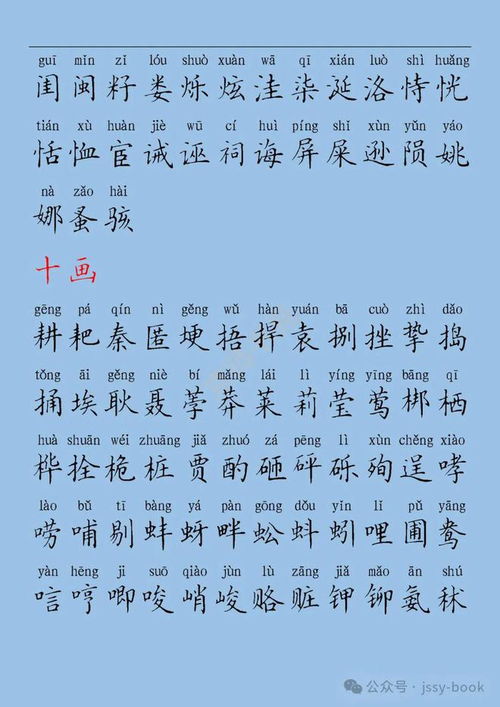 guī mǐn zǐ lóu shuò xuàn wā qī xián luò shì huǎng
闺 闽 籽 娄 烁 炫 洼 柒 涎 洛 恃 恍
tián xù huàn jiè wū cí huì píng shǐ xùn yǔn yáo
恬 恤 宦 诫 诬 祠 诲 屏 屎 逊 陨 姚
nà zǎo hài
娜 蚤 骇
十画
gēng pá qín nì gěng wǔ hàn yuán bā cuò zhì dǎo
耕 耙 秦 匿 埂 捂 捍 袁 捌 挫 挚 捣
tǒng āi gěng niè bí mǎng lái lì yíng yīng bāng qī
捅 埃 耿 聂 荸 莽 莱 莉 莹 莺 梆 栖
huà shuān wéi zhuāng jiǎ zhuó zá pēng lì xùn chěng xiào
桦 拴 桅 桩 贾 酌 砸 砰 砾 殉 逞 哮
lào bǔ tī bàng yá pàn gōng dǒu yǐn lǐ pǔ yāng
唠 哺 剔 蚌 蚜 畔 蚣 蚪 蚓 哩 圃 鸯
yàn hēng jī suō qiào jùn lù zāng jiǎ mǎo ān shú
唁 哼 唧 唆 峭 峻 赂 赃 钾 铆 氨 秫
公众号 · jssy-book